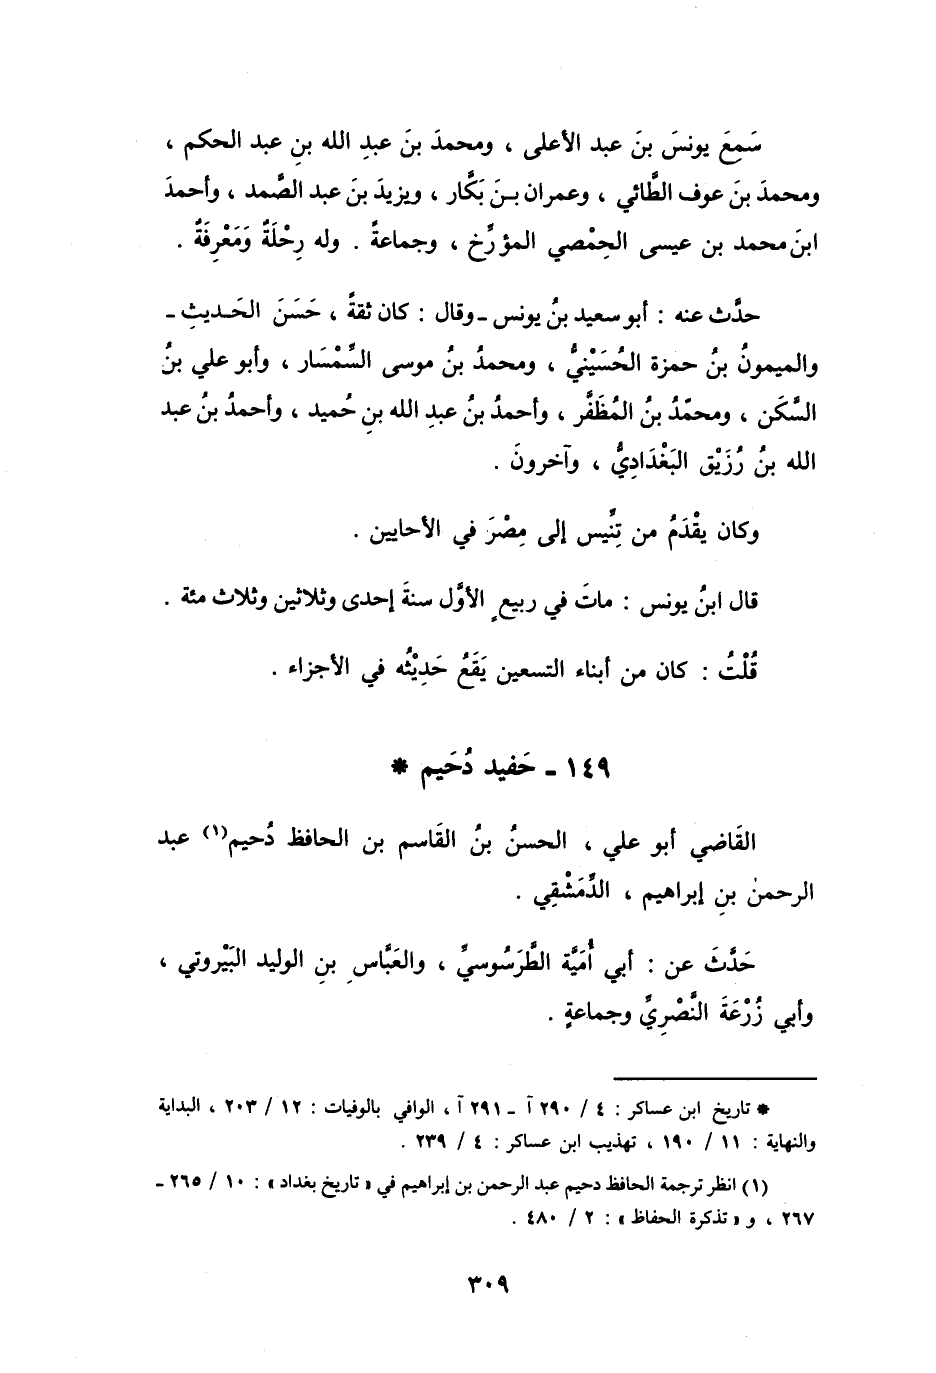 سَمِعَ يونسَ بنَ عبد الأعلى ، ومحمدَ بنَ عبدِ الله بنِ عبد الحكم ،
ومحمدَ بنَ عوف الطَّائي ، وعمران بنَ بَكَّار ، ويزيدَ بنَ عبد الصَّمد ، وأحمدَ
ابنَ محمد بن عيسى الحِمْصي المؤرِّخ ، وجماعةً . وله رِحْلَةٌ وَمَعْرِفَةٌ .
حدَّث عنه : أبو سعيد بنُ يونس ـ وقال : كان ثقةً ، حَسَنَ الحَديثِ ـ
والميمونُ بنُ حمزة الحُسَيْنيُّ ، ومحمدُ بنُ موسى السِّمْسَار ، وأبو علي بنُ
السَّكَن ، ومحمّدُ بنُ المُظَفَّر ، وأحمدُ بنُ عبدِ الله بنِ حُميد ، وأحمدُ بنُ عبد
الله بنُ رُزَيْق البَغْدَادِيُّ ، وآخرونَ .
وكان يقْدَمُ من تِنِّيس إلى مِصْرَ في الأحايين .
قال ابنُ يونس : ماتَ في ربيعٍ الأوَّل سنةَ إحدى وثلاثين وثلاث مئة .
قُلْتُ : كان من أبناء التسعين يَقَعُ حَدِيْثُه في الأجزاء .
١٤٩ ـ حَفيد دُحَيم *
القَاضي أبو علي ، الحسنُ بنُ القَاسم بن الحافظ دُحيم(١) عبد
الرحمنِ بنِ إبراهيم ، الدِّمَشْقِي .
حَدَّثَ عن : أبي أُمَيَّة الطَّرَسُوسيِّ ، والعَبَّاسِ بنِ الوليد البَيْروتي ،
وأبي زُرْعَةَ النَّصْرِيِّ وجماعةٍ .
* تاريخ ابن عساكر : ٤ / ٢٩٠ آ ـ ٢٩١ آ ، الوافي بالوفيات : ١٢ / ٢٠٣ ، البداية
والنهاية : ١١ / ١٩٠ ، تهذيب ابن عساكر : ٤ / ٢٣٩ .
(١) انظر ترجمة الحافظ دحيم عبد الرحمن بن إبراهيم في « تاريخ بغداد » : ١٠ / ٢٦٥ ـ
٢٦٧ ، و « تذكرة الحفاظ » : ٢ / ٤٨٠ .
٣٠٩